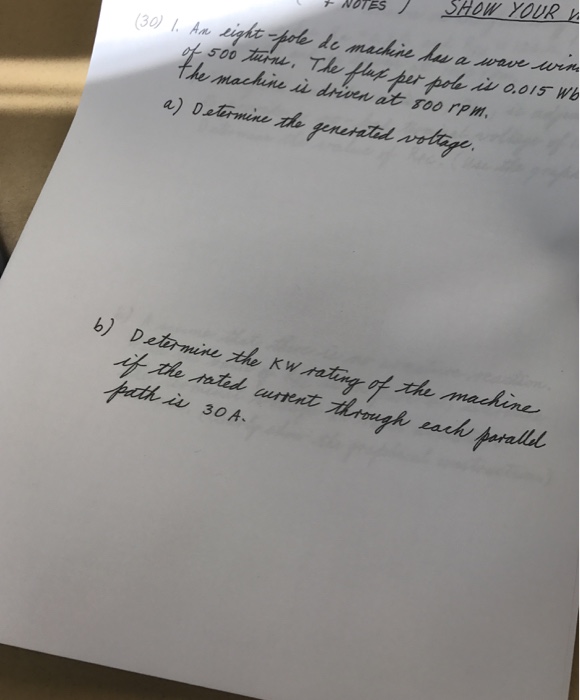 + NOTES ) SHOW YOUR
(30) 1. An eight-pole dc machine has a wave
of 500 turns. The flux per pole is 0.015 Wb
the machine is driven at 800 rpm.
a) Determine the generated voltage.
b) Determine the KW rating of the machine
if the rated current through each parallel
path is 30 A.